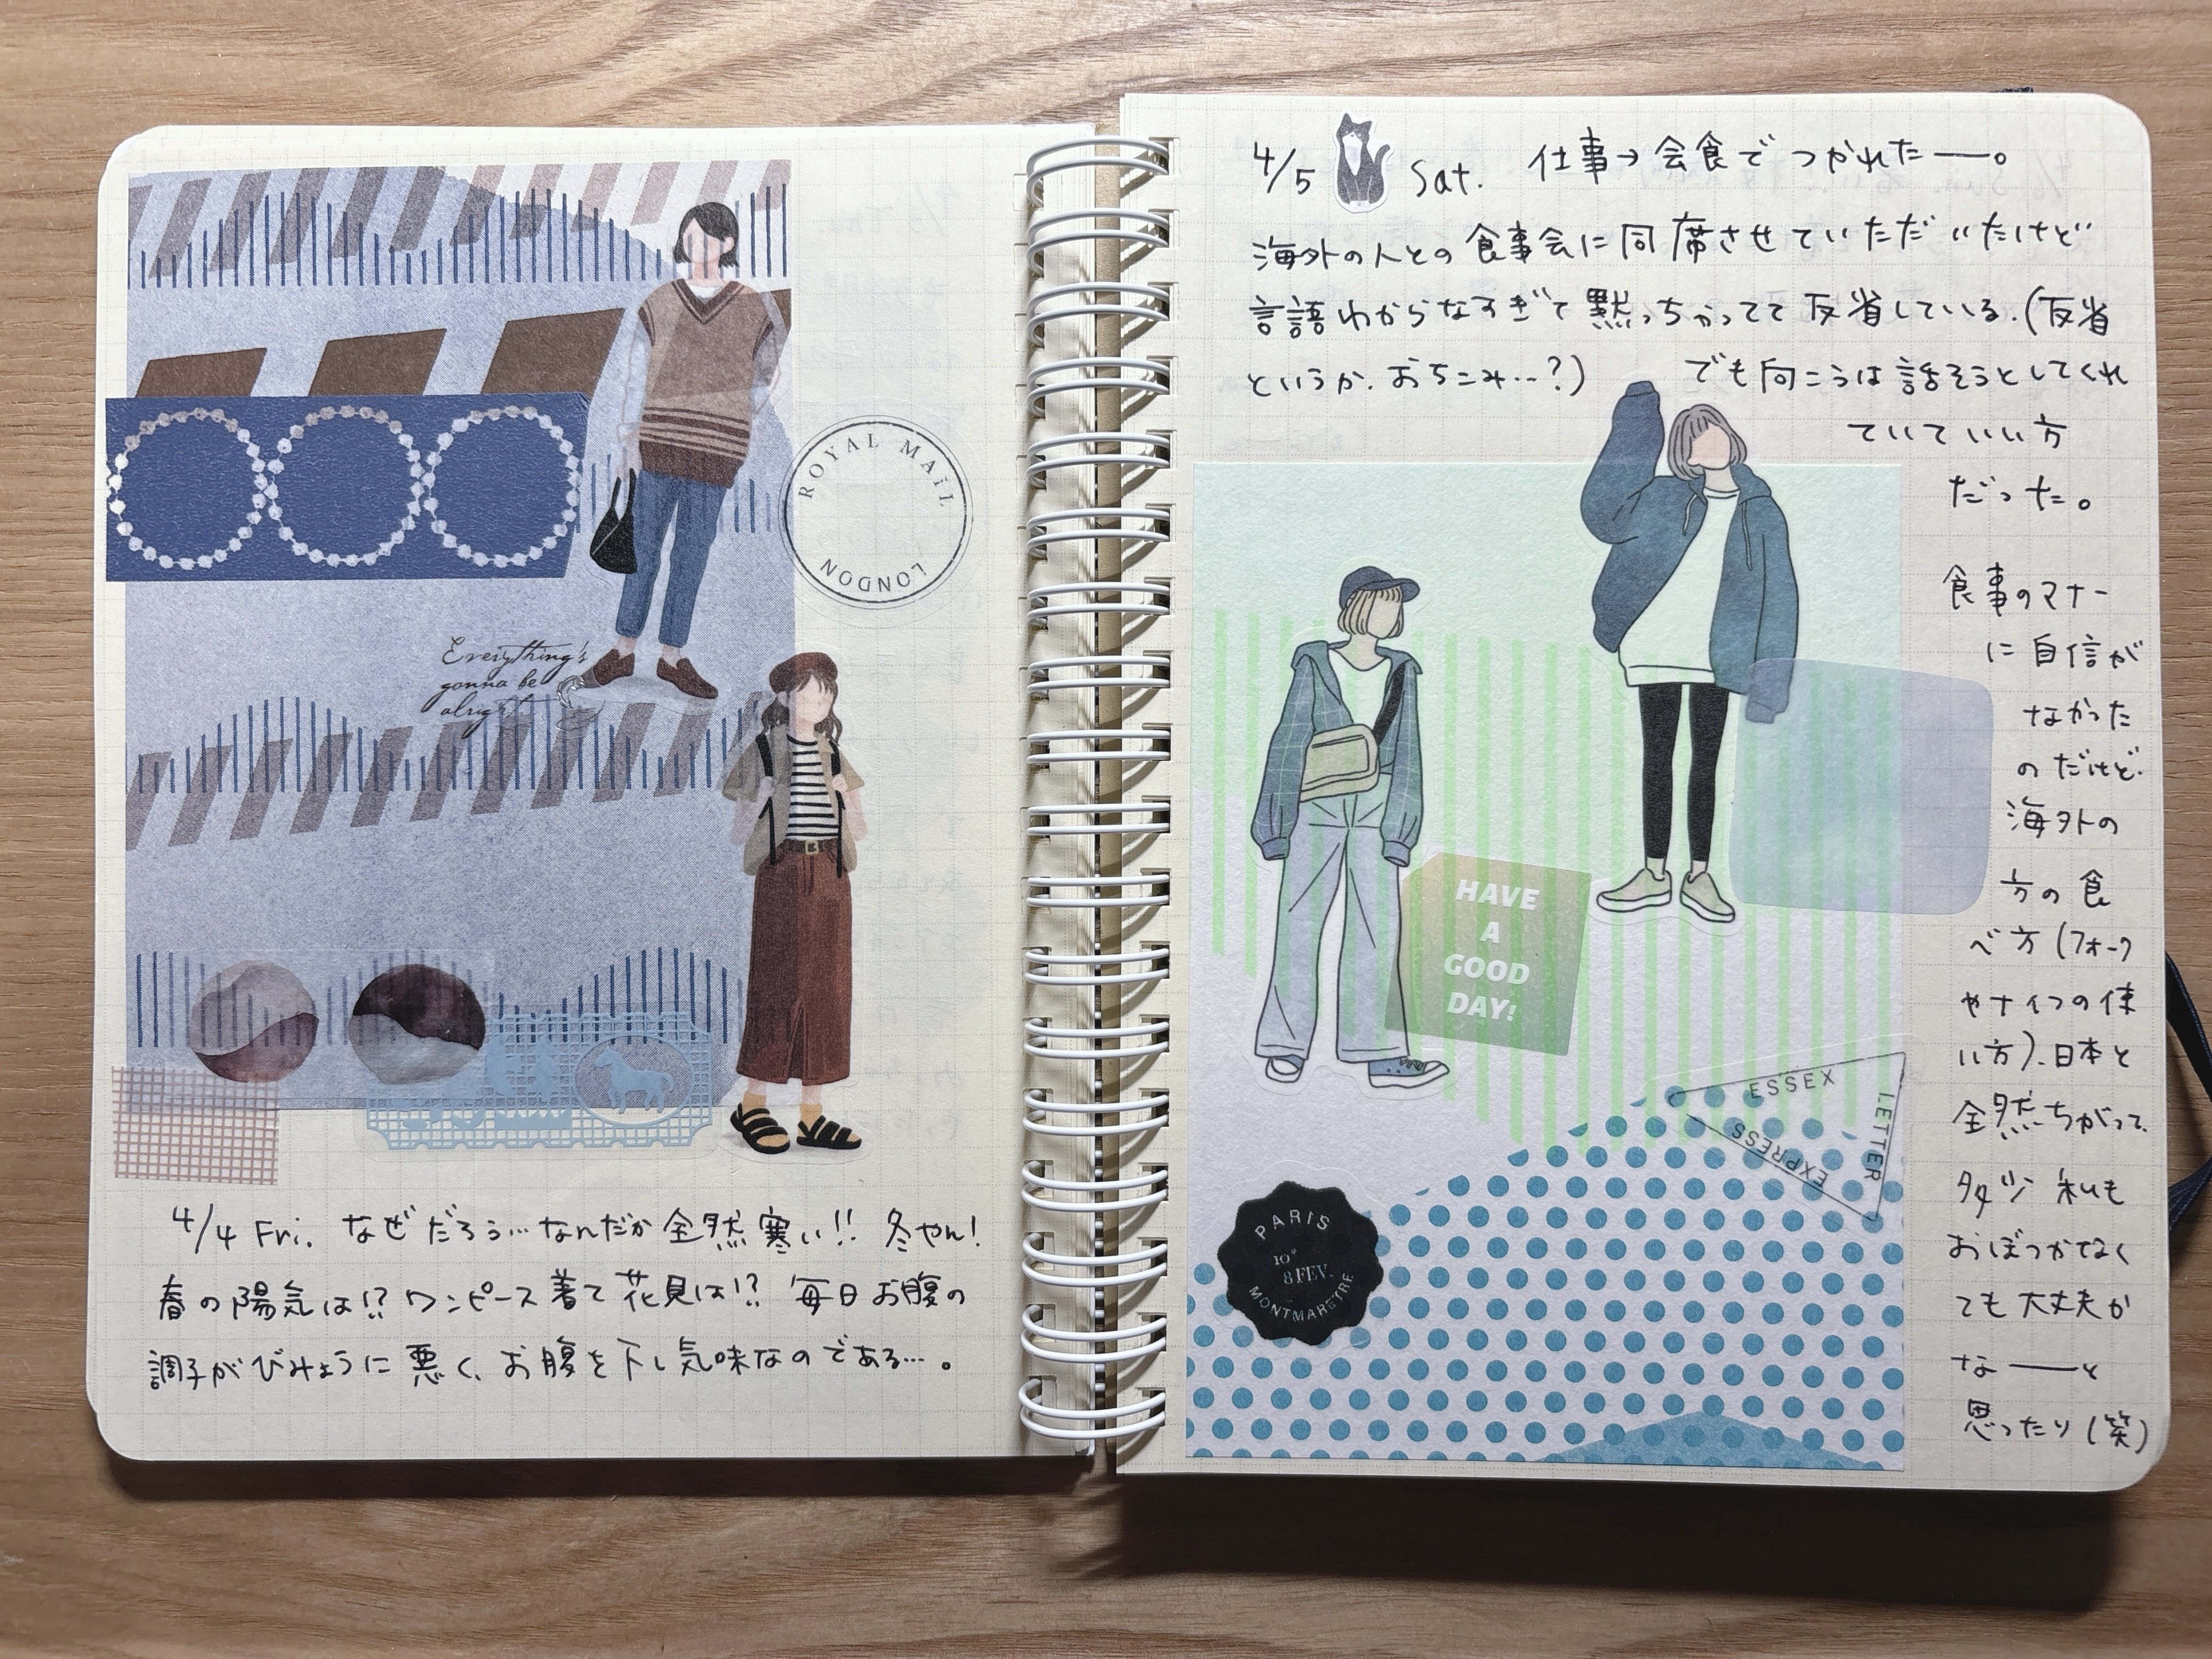 ROYAL MAIL
LONDON
Everything's
gonna be
alright
4/4 Fri. なぜだろう…なんだか全然寒い!! 冬やん!
春の陽気は!? ワンピース着て花見は!? 毎日お腹の
調子がびみょうに悪く、お腹を下し気味なのである…。
4/5 Sat. 仕事→会食でつかれたー。
海外の人との食事会に同席させていただいたけど
言語わからなすぎて黙っちゃってて反省している.(反省
というか、おちこみ…?) でも向こうは話そうとしてくれ
ていていい方
だった。
食事のマナー
に自信が
なかった
のだけど、
海外の
方の食
べ方(フォーク
やナイフの使
い方)、日本と
全然ちがって、
多少私も
おぼつかなく
ても大丈夫か
なーと
思ったり(笑)
HAVE
A
GOOD
DAY!
ESSEX
LETTER
EXPRESS
PARIS
10°
8 FEV.
MONTMARETRE